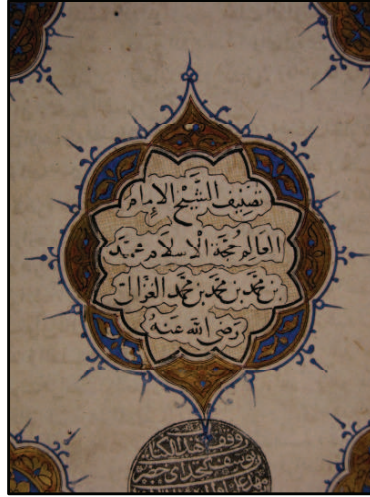 تصنيف الشيخ الإمام
العالم حجة الإسلام محمد
بن محمد بن محمد بن محمد الغزالي
رضى الله عنه
وقف هذا الكتاب